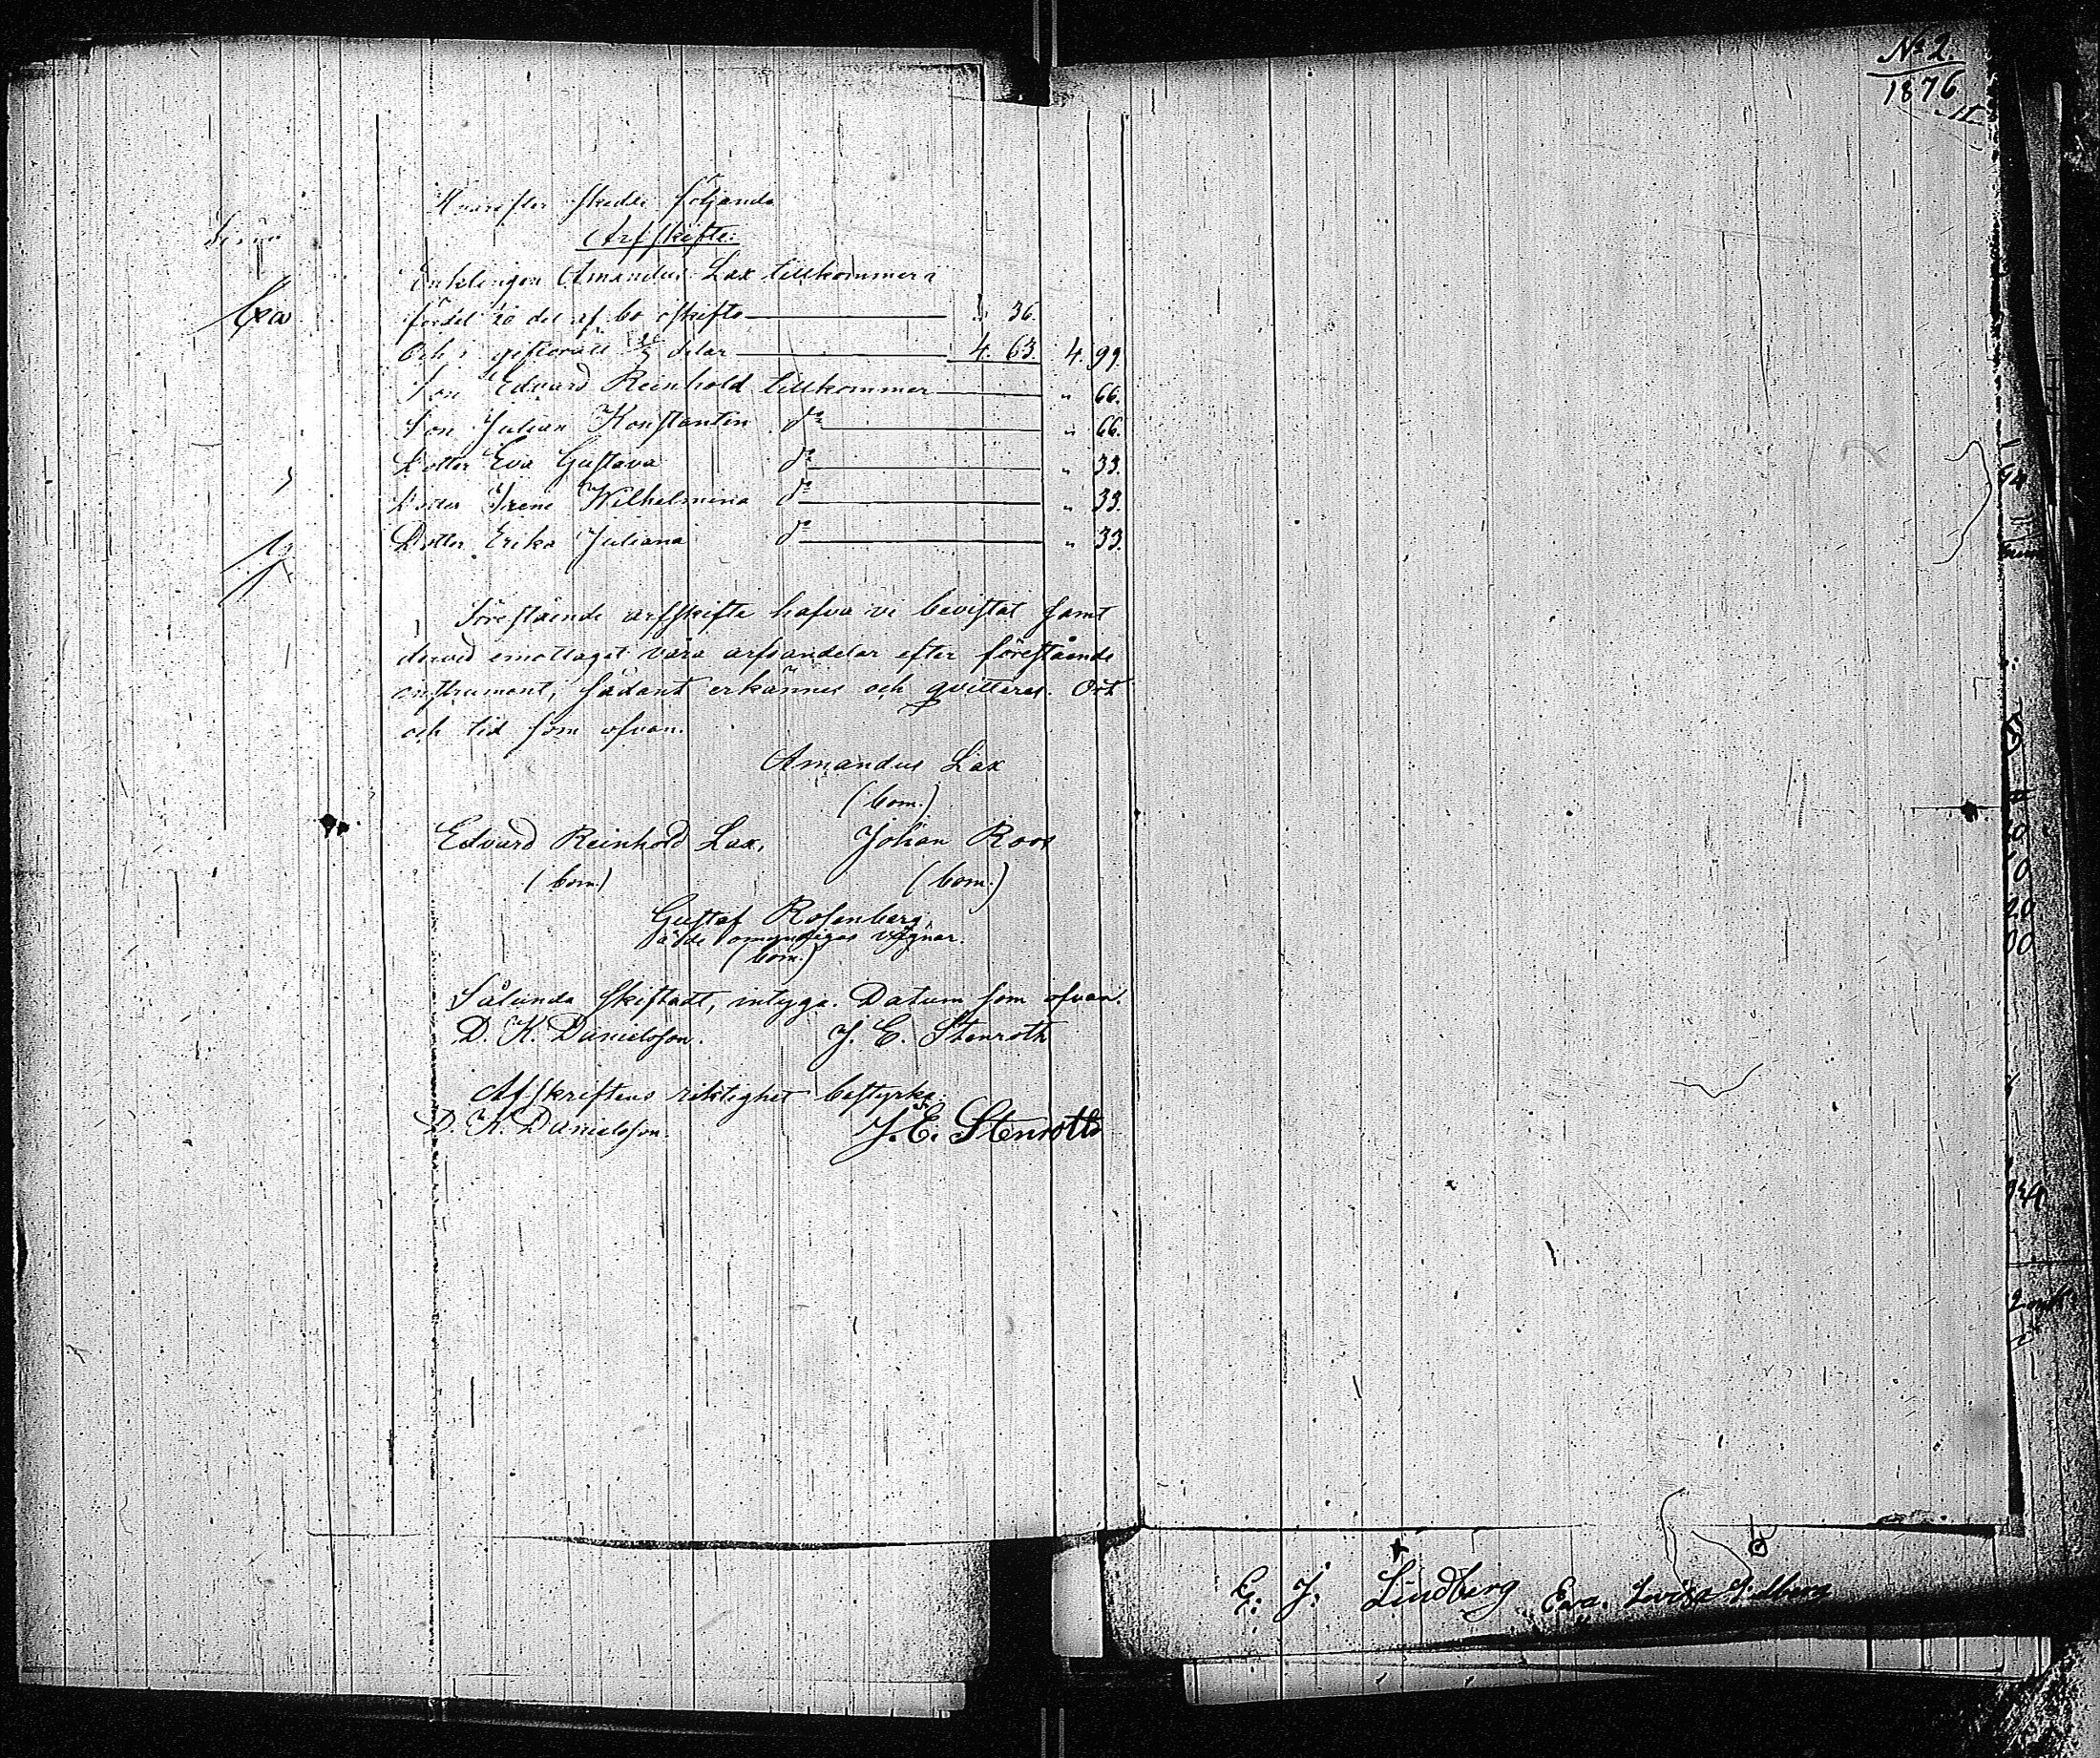 Hvarefter skedde följande
Arfskifte:
Enklingen Amandus Lax tillkommer i
fördel 1/20 del af bo oskifto " 36.
Och i giftorätt 2/3 delar 4. 63. 4. 99.
Son Edvard Reinhold tillkommer " 66.
Son Julian Konstantin do " 66.
Dotter Eva Gustava do " 33.
Dotter Irene Wilhelmina do " 33.
Dotter Erika Juliana do " 33.
Förestående arfskifte hafva vi bevistat samt
dervid emottaget våra arfsandelar efter förestående
instrument, sådant erkännes och qvitteras. Ort
och tid som ofvan.
Amandus Lax
(bom.)
Edvard Reinhold Lax. Johan Roos
(bom.) (bom.)
Gustaf Rosenberg
å de omyndigas vägnar.
(bom.)
Sålunda skiftadt, intyga. Datum som ofvan.
D. K. Danielsson. J. E. Stenroth
Afskriftens riktighet bestyrka:
D. K. Danielsson. J. E. Stenroth
No 2
1876
II
E. J. Lindberg Eva Lovisa